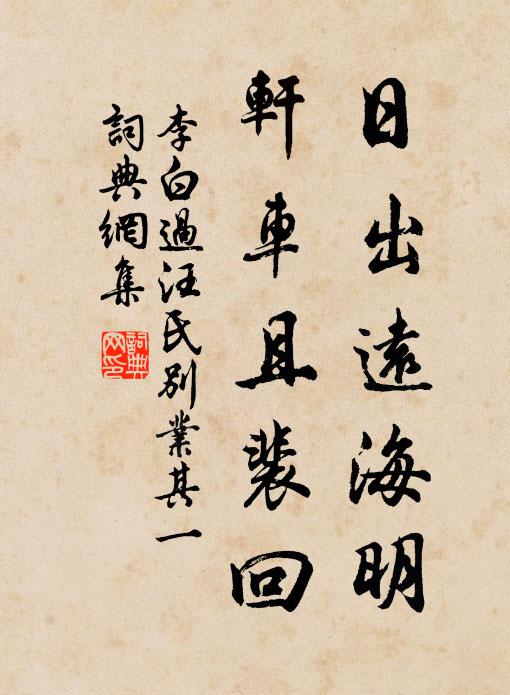 日出遠海明
軒車且裴回
李白過汪氏別業其一
詞典網集
詞典網印